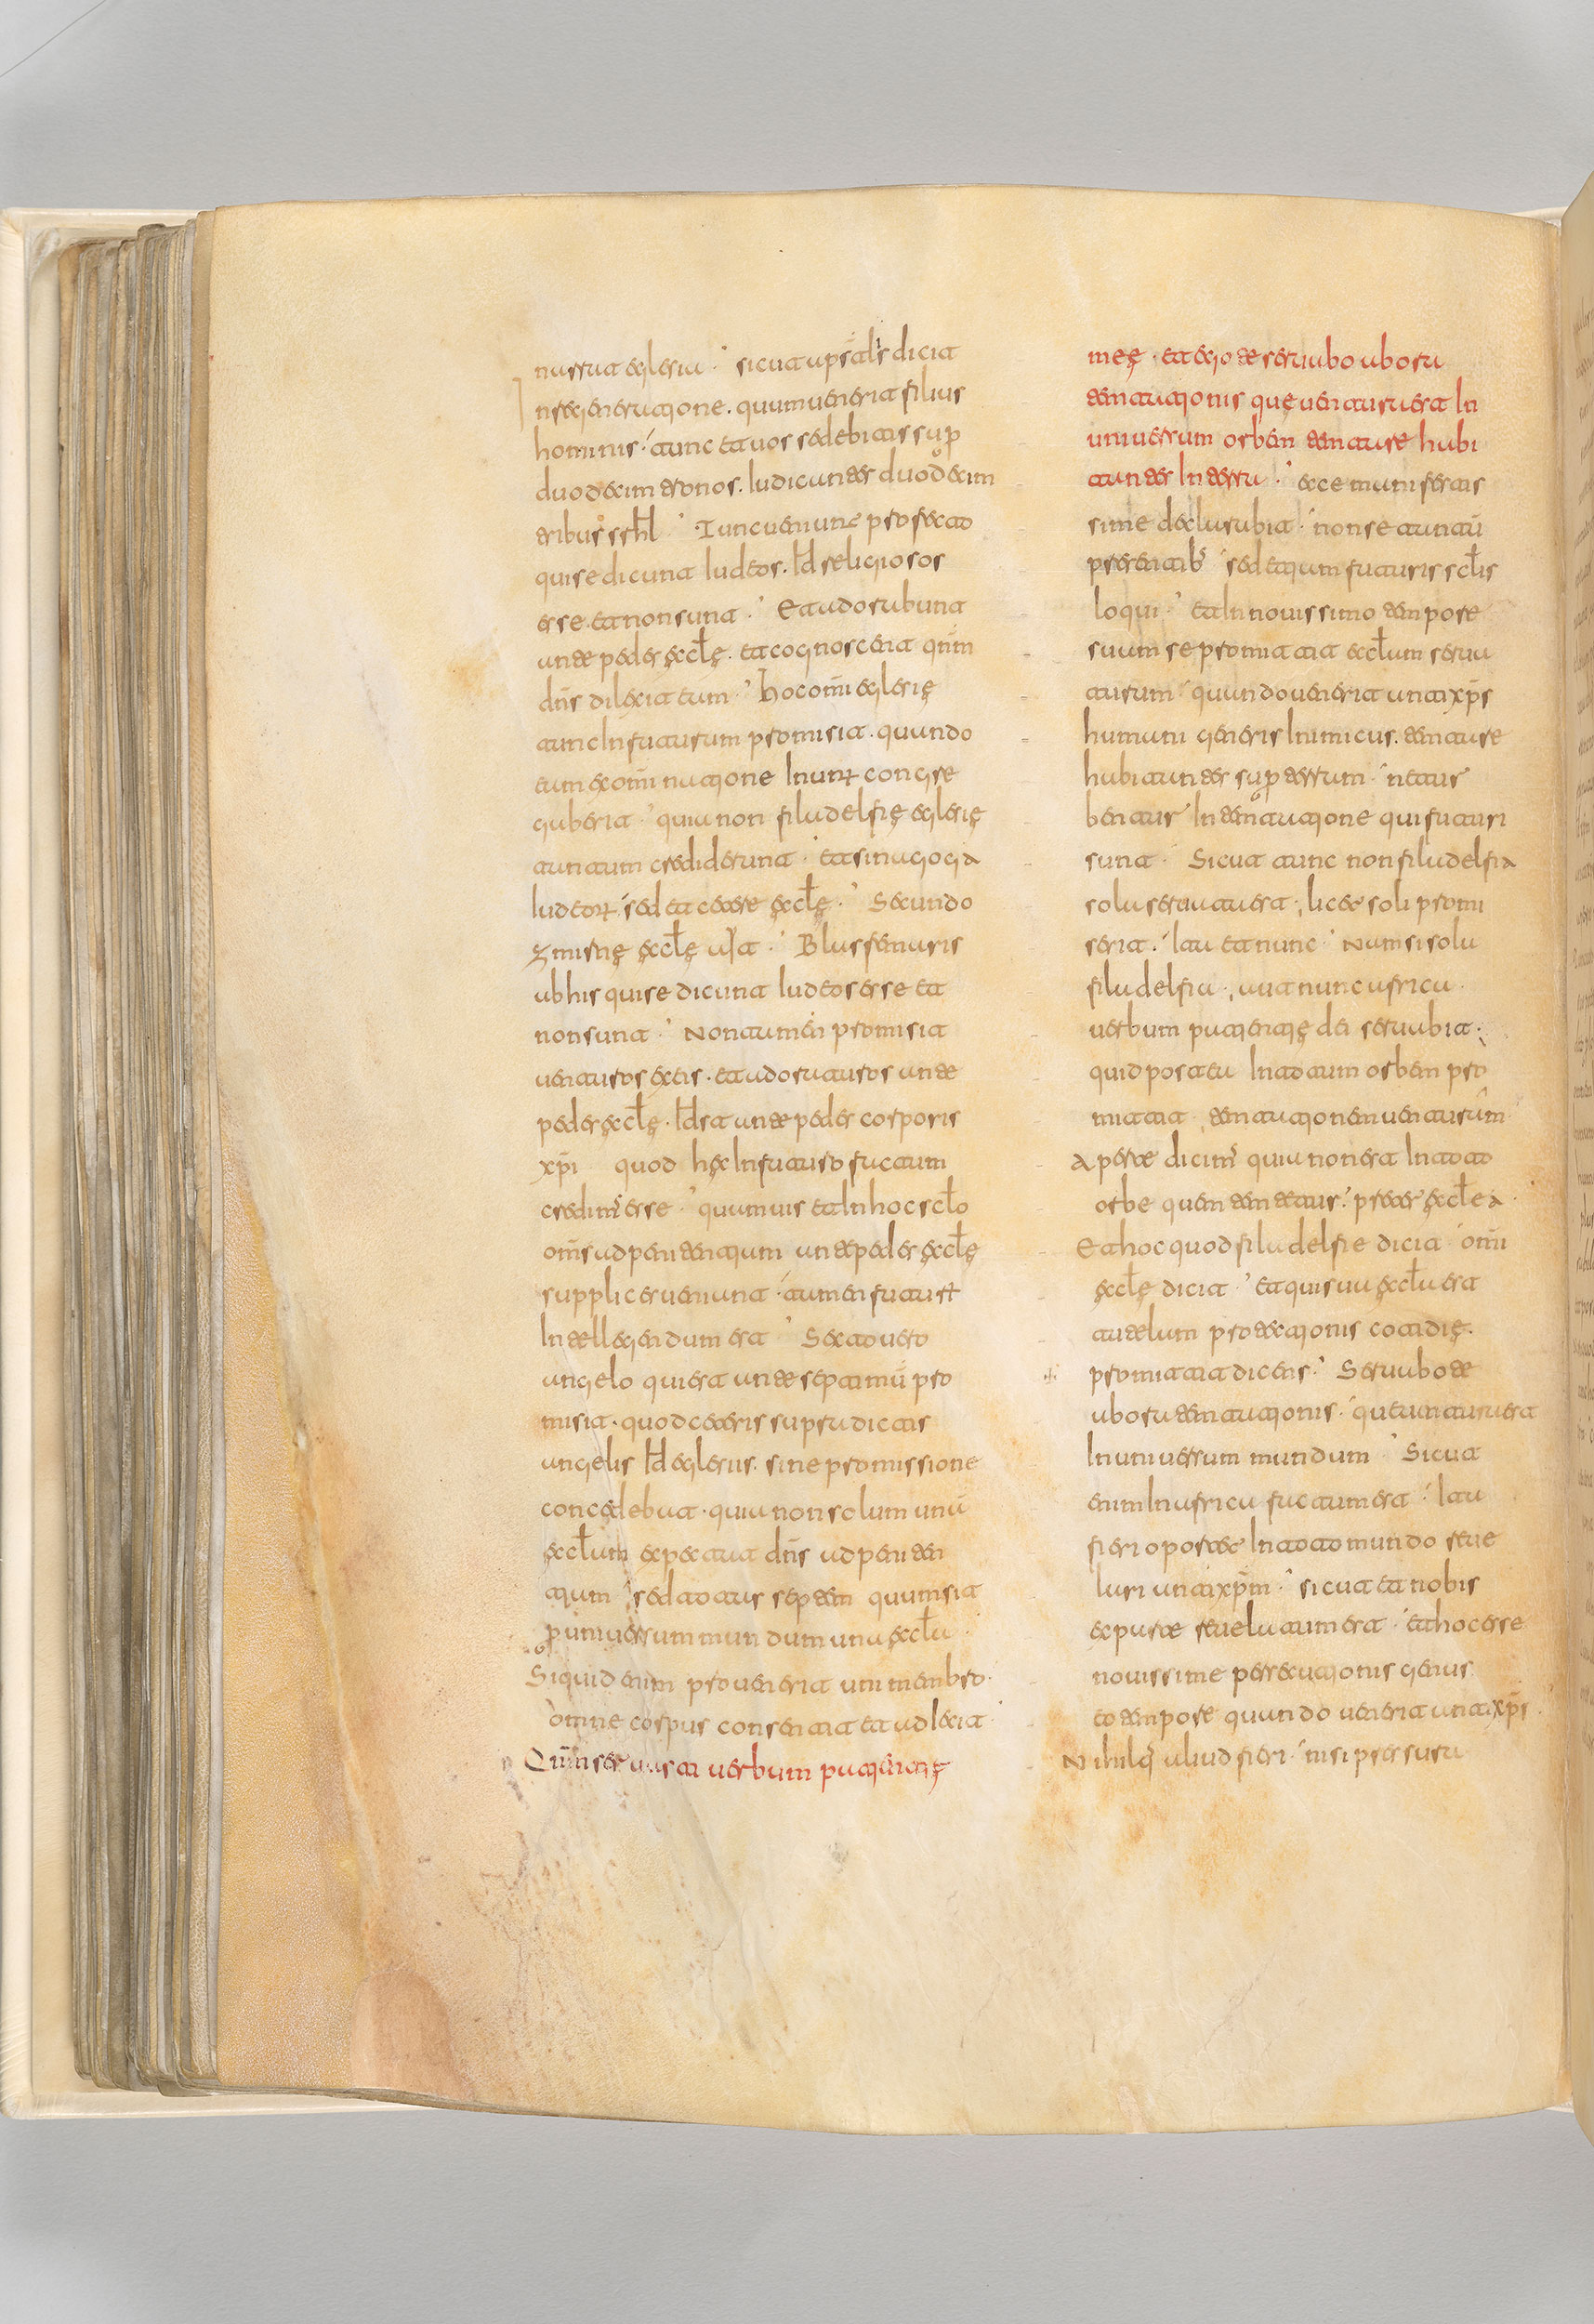 narrat eglesia. sicut apstl̄s dicit
In regeneratione. quum uenerit filius
hominis. tunc et uos sedebitis sup̄
duodecim tronos. Iudicantes duodecim
tribus srhl̄. Tunc ueniunt profecto
qui se dicunt Iudeos. Id̄ religiosos
esse et non sunt. Et adorabunt
ante pedes ęccl̄ę. et cognoscent qnm̄
dn̄s dilexit eum. Hoc omī eglesię
tunc In futurum promisit. quando
eum ex omī natione Inunꝝ congre
gaberit. quia non filadelfię eglesię
tantum crediderunt. et sinagoga
Iudeoꝝ sed et cetere ęccl̄ę. Secundo
zmirnę ęccl̄ę ait. Blasfemaris
ab his qui se dicunt Iudeos esse et
non sunt. Non tamen promisit
uenturos ex eis. et adoraturos ante
pedes ęccl̄ę. Id̄ est ante pedes corporis
xp̄i quod hęc In futuro factum
credim' esse. quamuis et In hoc scl̄o
om̄s ad penitentiam ante pedes ęccl̄ę
supplices ueniunt. tamen futurꝝ
Intellegendum est. Sexto uero
angelo qui est ante septimū pro
misit. quod ceteris supradictis
angelis Id̄ eglesiis. sine promissione
concedebat. quia non solum unā
ęccl̄am expectat dn̄s ad peniten
tiam sed totas septem quum sit
p̄ uniuersum mundum una ęccl̄a.
Siquid enim prouenerit uni menbro.
omne corpus consentit et adlexit.
Qnm̄ seruasti uerbum patientię
meę. et ego te seruabo ab ora
temtationis quę uentura est In
uniuersum orbem temtare habi
tantes In terra. ecce manifestis
sime declarabit. non se tantū
presentib' sed etiam futuris scl̄is
loqui. et In nouissimo tempore
suum se promittit eccl̄am serua
turum quando uenerit antixp̄s
humani generis Inimicus. temtare
habitantes sup̄ terram. ne tur
bentur In temtatione qui futuri
sunt. Sicut tunc non filadelfia
sola seruata est. licet soli promi
serit. Ita et nunc Num si sola
filadelfia. aut nunc africa.
uerbum patientię dei seruabit.
quid postea In totum orbem pro
mittit temtationem uenturam
Aperte dicim' quia non est In toto
orbe quem temtetur. preter ęccl̄ea.
Et hoc quod filadelfie dicit omī
ęccl̄ę dicit. et quis sua ęccl̄a est
tutelam protectionis cotidię.
promittit dicens. Seruabo te
ab ora temtationis. que uentura est
In uniuersum mundum. Sicut
enim In africa factum est. Ita
fieri oportet In toto mundo reue
lari antixp̄m. sicut et nobis
ex parte reuelatum est. et hoc esse
nouissime persecutionis genus.
eo tempore quando uenerit antixp̄s.
Nihilq' aliud fieri nisi pressura